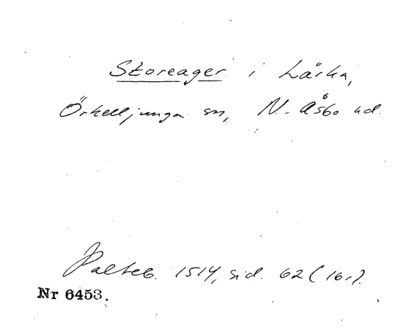 Storeager i Lärka,
Örkelljunga sn, N. Åsbo hd.
Palteb. 1514, sid. 62 (16r).
Nr 6453.